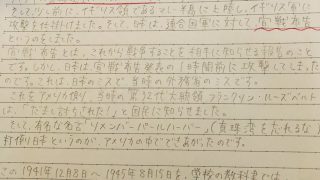 そしてその前に、イギリス領であるマレー半島にも上陸し、イギリス軍に
攻撃を仕掛けました。そして日本は、連合国軍に対して、宣戦布告
というのをしました。
宣戦布告とは、これから戦争することを相手に知らせる報告のこと
です。しかし日本は宣戦布告発表の1時間前に攻撃してしまった
のです。これは日本のミスで当時の外務省のミスです。
これをアメリカ側、当時の第32代大統領フランクリン・ルーズベルト
は、「だまし討ちされた!」と国民に知らせました。
そして、有名な名言「リメンバーパールハーバー」(真珠湾を忘れるな)
打倒日本というのが、アメリカの中でできあがったのです。
この1941年12月8日〜1945年8月15日を、学校の教科書では